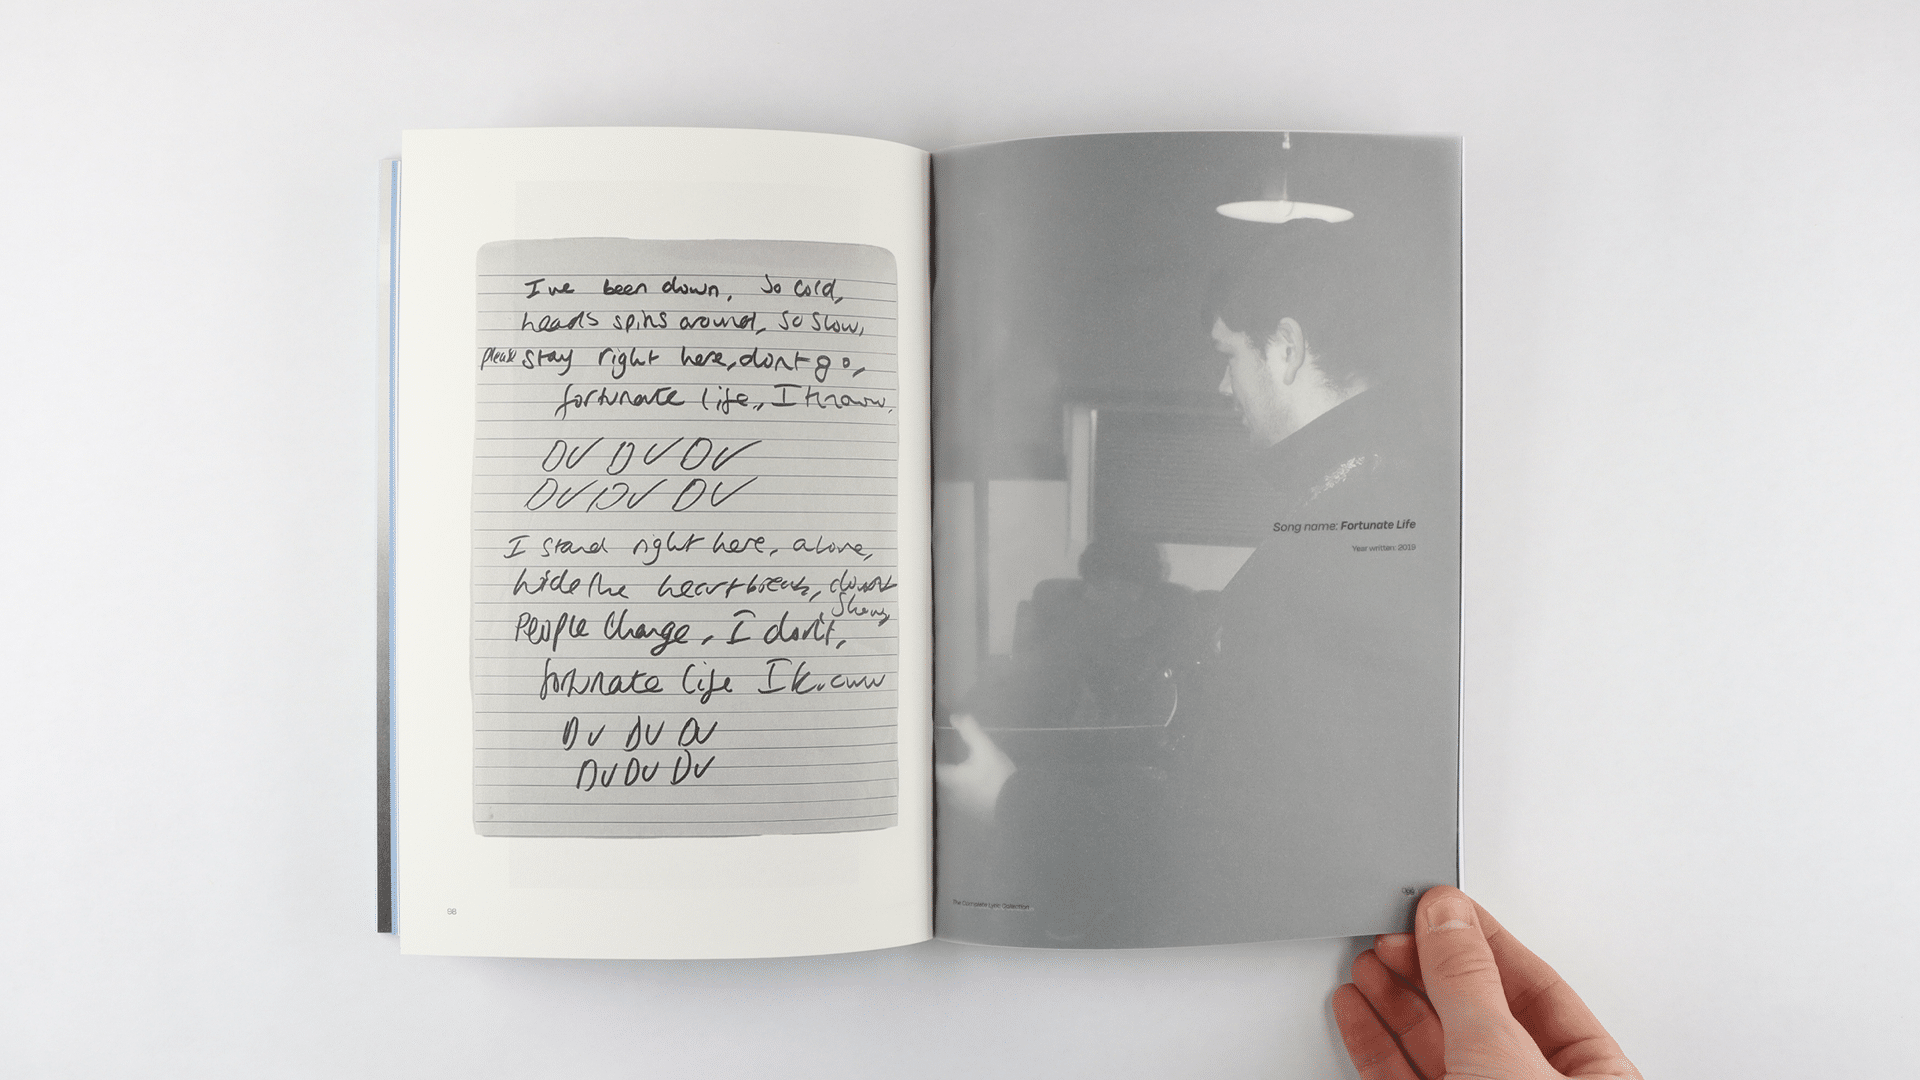 I've been down, So cold,
heads spins around, So slow,
please stay right here, dont go,
fortunate life, I know,
DV DV DV
DV DV DV
I stand right here, alone,
hide the heartbreak,
People Change, I don't,
fortunate life I know
DV DV DV
DV DV DV
98
Song name: Fortunate Life
Year written: 2019
The Complete Lyric Collection